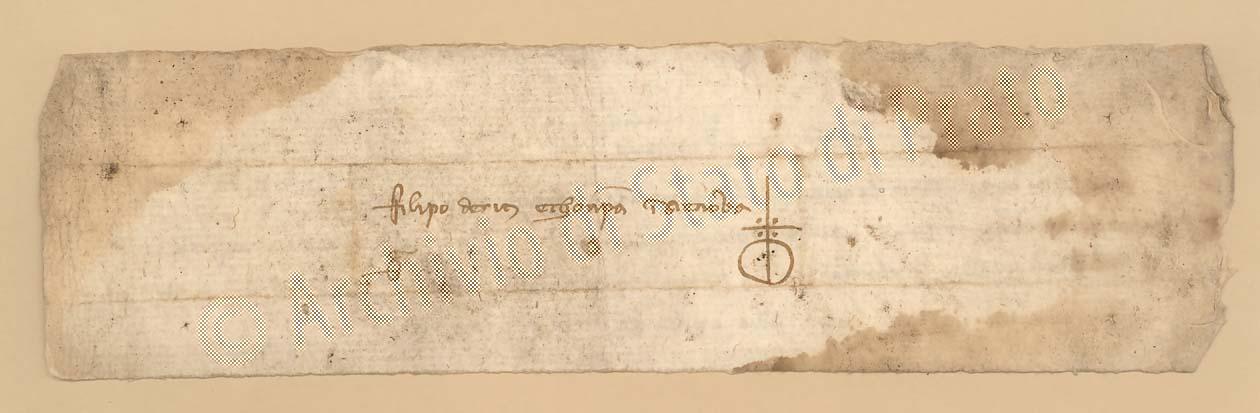 filipo derizo e chonpa
© Archivio di Stato di Prato